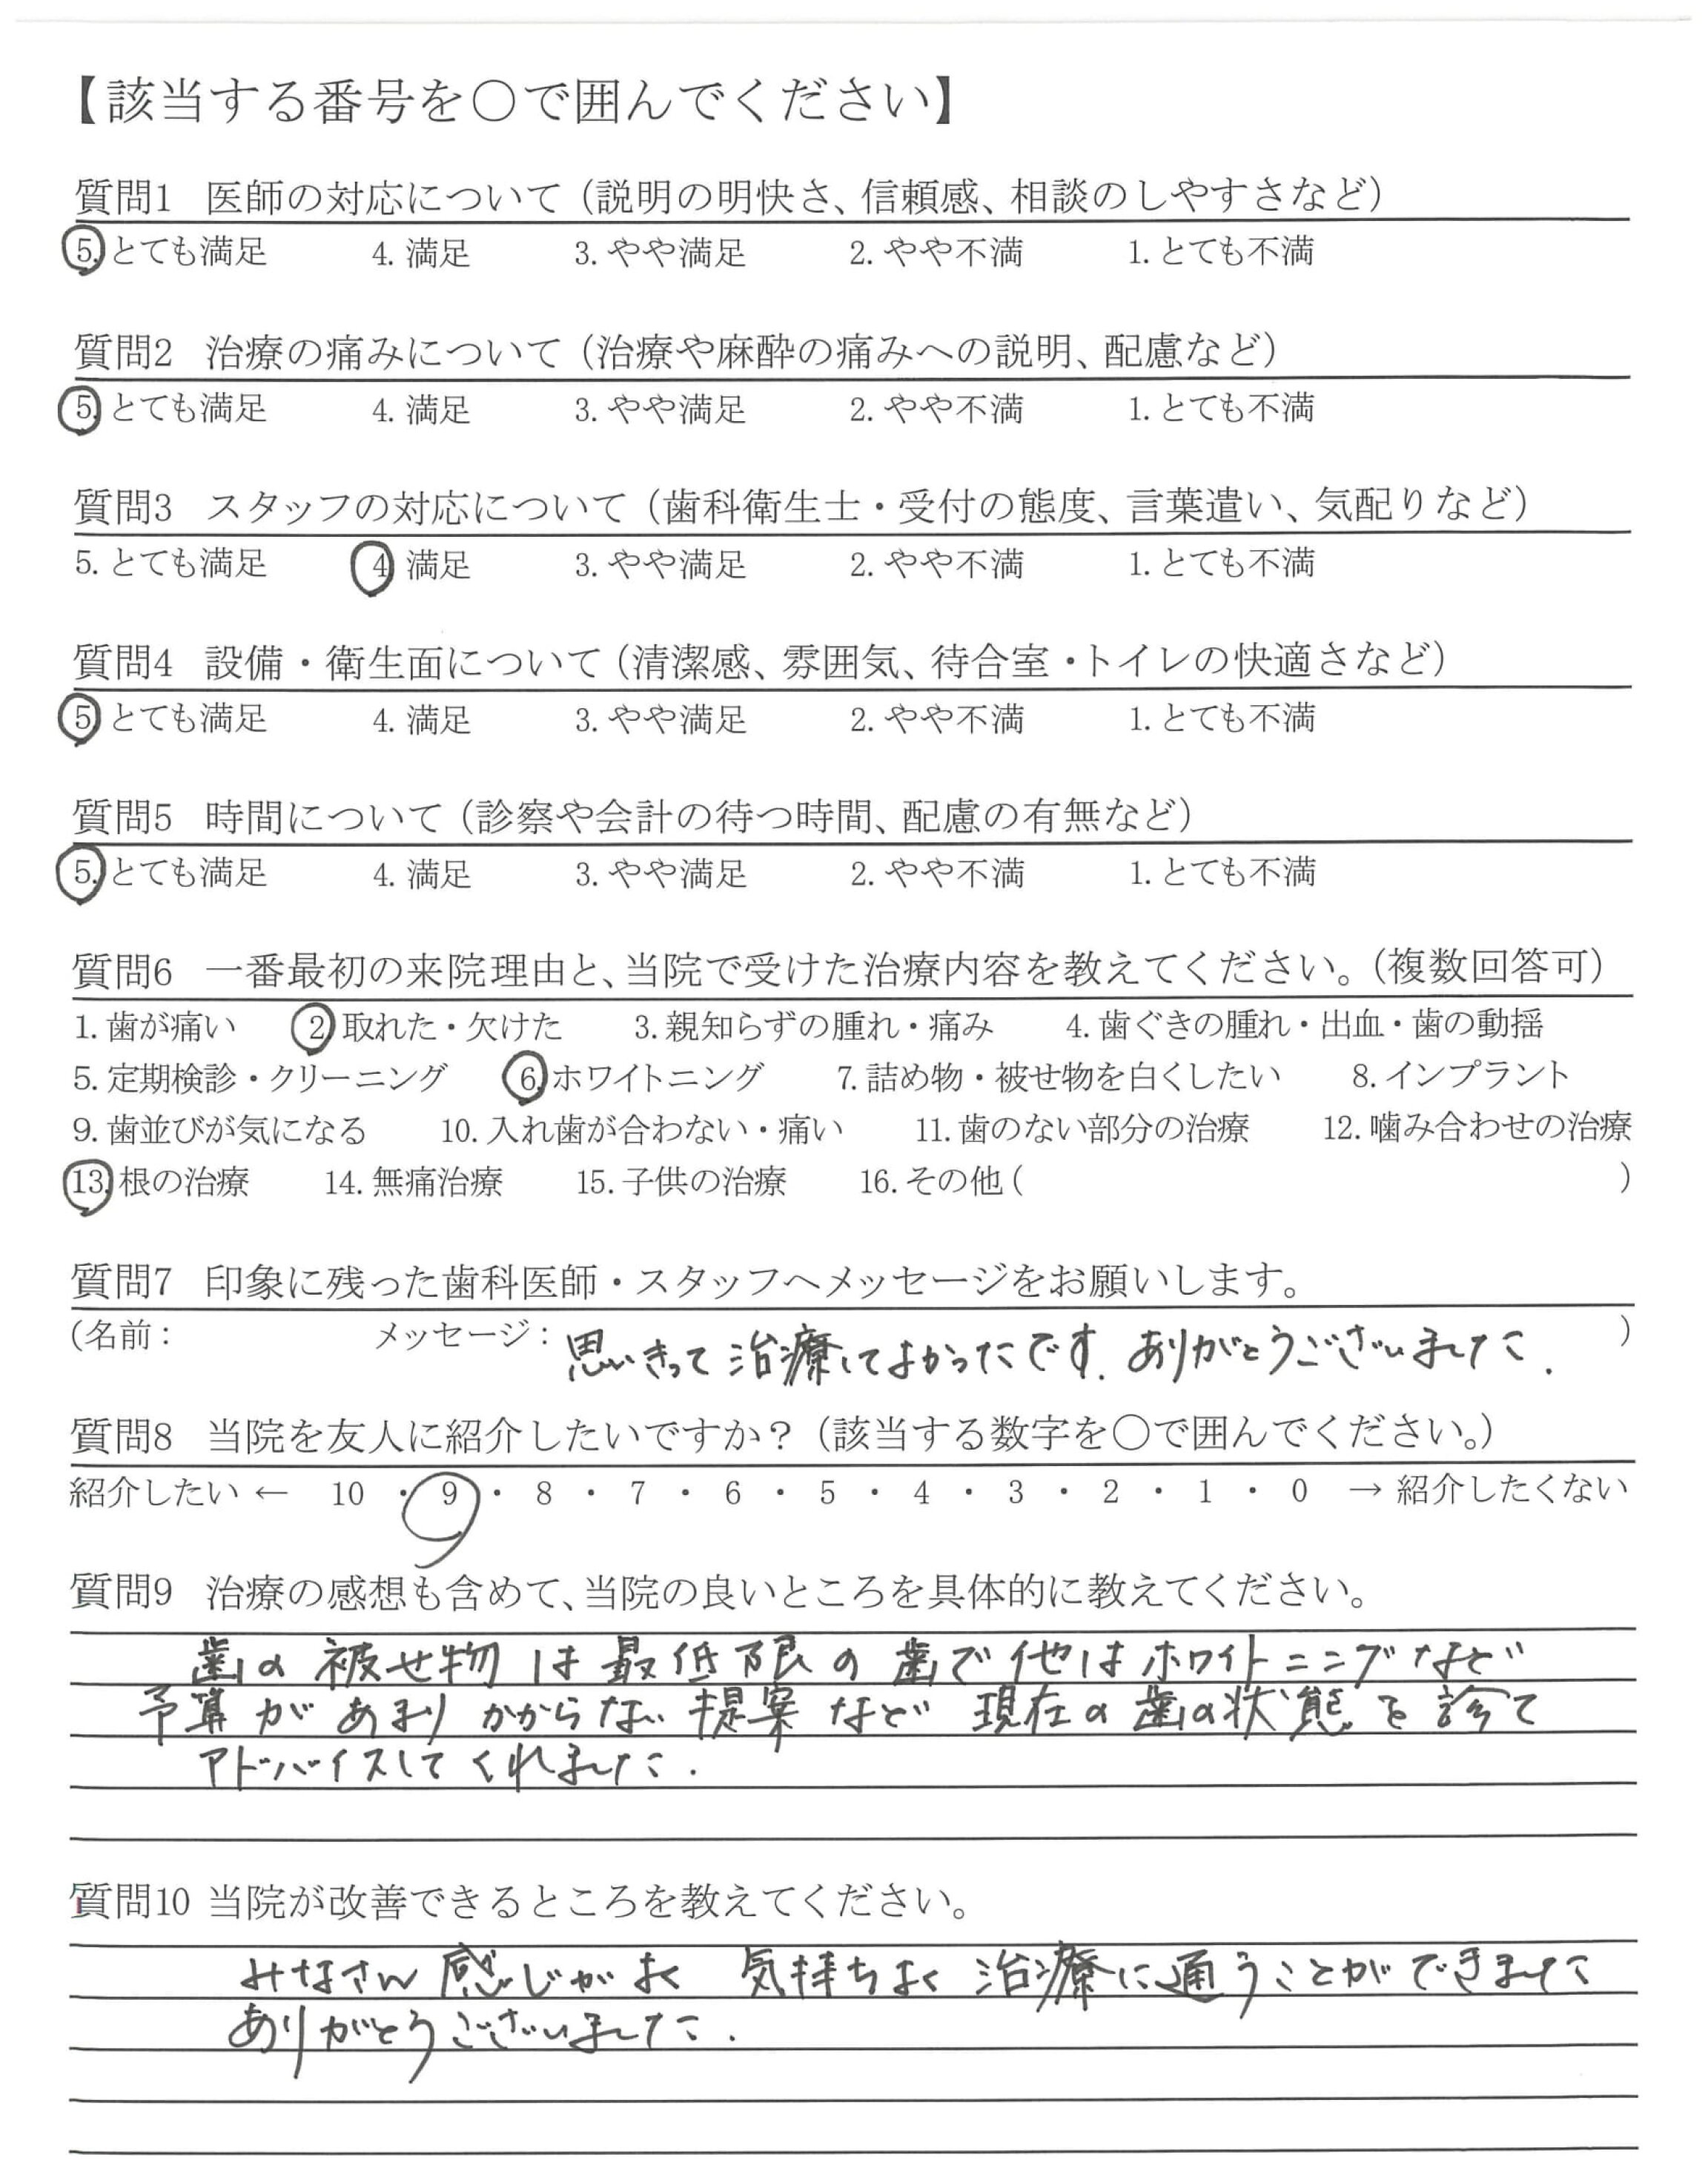 【該当する番号を〇で囲んでください】
質問1 医師の対応について（説明の明快さ、信頼感、相談のしやすさなど）
5. とても満足 4. 満足 3. やや満足 2. やや不満 1. とても不満
質問2 治療の痛みについて（治療や麻酔の痛みへの説明、配慮など）
5. とても満足 4. 満足 3. やや満足 2. やや不満 1. とても不満
質問3 スタッフの対応について（歯科衛生士・受付の態度、言葉遣い、気配りなど）
5. とても満足 4. 満足 3. やや満足 2. やや不満 1. とても不満
質問4 設備・衛生面について（清潔感、雰囲気、待合室・トイレの快適さなど）
5. とても満足 4. 満足 3. やや満足 2. やや不満 1. とても不満
質問5 時間について（診察や会計の待つ時間、配慮の有無など）
5. とても満足 4. 満足 3. やや満足 2. やや不満 1. とても不満
質問6 一番最初の来院理由と、当院で受けた治療内容を教えてください。（複数回答可）
1. 歯が痛い 2. 取れた・欠けた 3. 親知らずの腫れ・痛み 4. 歯ぐきの腫れ・出血・歯の動揺
5. 定期検診・クリーニング 6. ホワイトニング 7. 詰め物・被せ物を白くしたい 8. インプラント
9. 歯並びが気になる 10. 入れ歯が合わない・痛い 11. 歯のない部分の治療 12. 噛み合わせの治療
13. 根の治療 14. 無痛治療 15. 子供の治療 16. その他（ ）
質問7 印象に残った歯科医師・スタッフへメッセージをお願いします。
（名前： メッセージ：思いきって治療してよかったです. ありがとうございました. ）
質問8 当院を友人に紹介したいですか？（該当する数字を〇で囲んでください。）
紹介したい ← 10 ・ 9 ・ 8 ・ 7 ・ 6 ・ 5 ・ 4 ・ 3 ・ 2 ・ 1 ・ 0 → 紹介したくない
質問9 治療の感想も含めて、当院の良いところを具体的に教えてください。
歯の被せ物は最低限の歯で他はホワイトニングなど
予算があまりかからない提案など現在の歯の状態を診て
アドバイスしてくれました.
質問10 当院が改善できるところを教えてください。
みなさん感じがよく 気持ちよく治療に通うことができました
ありがとうございました.